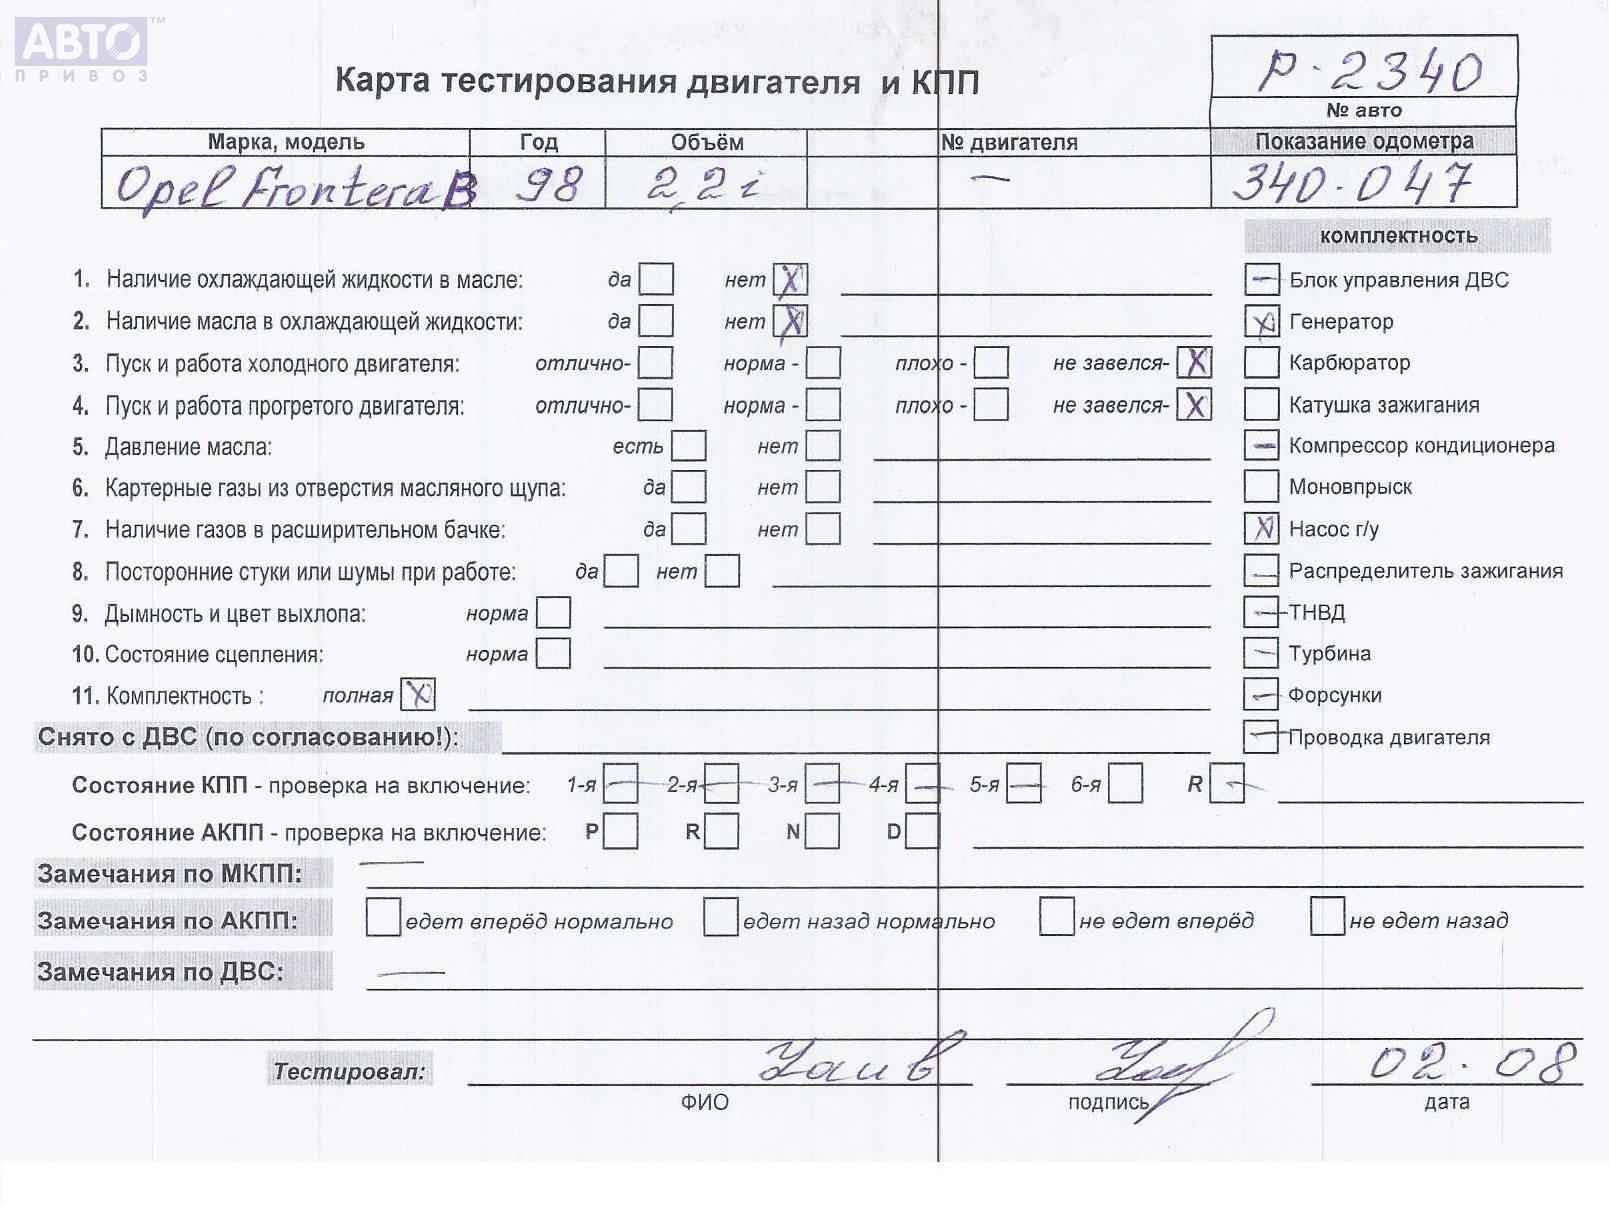 АВТО™
ПРИВОЗ
Карта тестирования двигателя и КПП
Р-2340
№ авто
Марка, модель Год Объём № двигателя Показание одометра
Opel Frontera B 98 2,2i — 340.047
комплектность
1. Наличие охлаждающей жидкости в масле: да нет X
Блок управления ДВС
2. Наличие масла в охлаждающей жидкости: да нет X
Генератор
3. Пуск и работа холодного двигателя: отлично- норма - плохо - не завелся- X
Карбюратор
4. Пуск и работа прогретого двигателя: отлично- норма - плохо - не завелся- X
Катушка зажигания
5. Давление масла: есть нет
Компрессор кондиционера
6. Картерные газы из отверстия масляного щупа: да нет
Моновпрыск
7. Наличие газов в расширительном бачке: да нет
Насос г/у
8. Посторонние стуки или шумы при работе: да нет
Распределитель зажигания
9. Дымность и цвет выхлопа: норма
ТНВД
10. Состояние сцепления: норма
Турбина
11. Комплектность : полная X
Форсунки
Снято с ДВС (по согласованию!):
Проводка двигателя
Состояние КПП - проверка на включение: 1-я 2-я 3-я 4-я 5-я 6-я R
Состояние АКПП - проверка на включение: P R N D
Замечания по МКПП: —
Замечания по АКПП: едет вперёд нормально едет назад нормально не едет вперёд не едет назад
Замечания по ДВС: —
Тестировал: 02.08
ФИО подпись дата